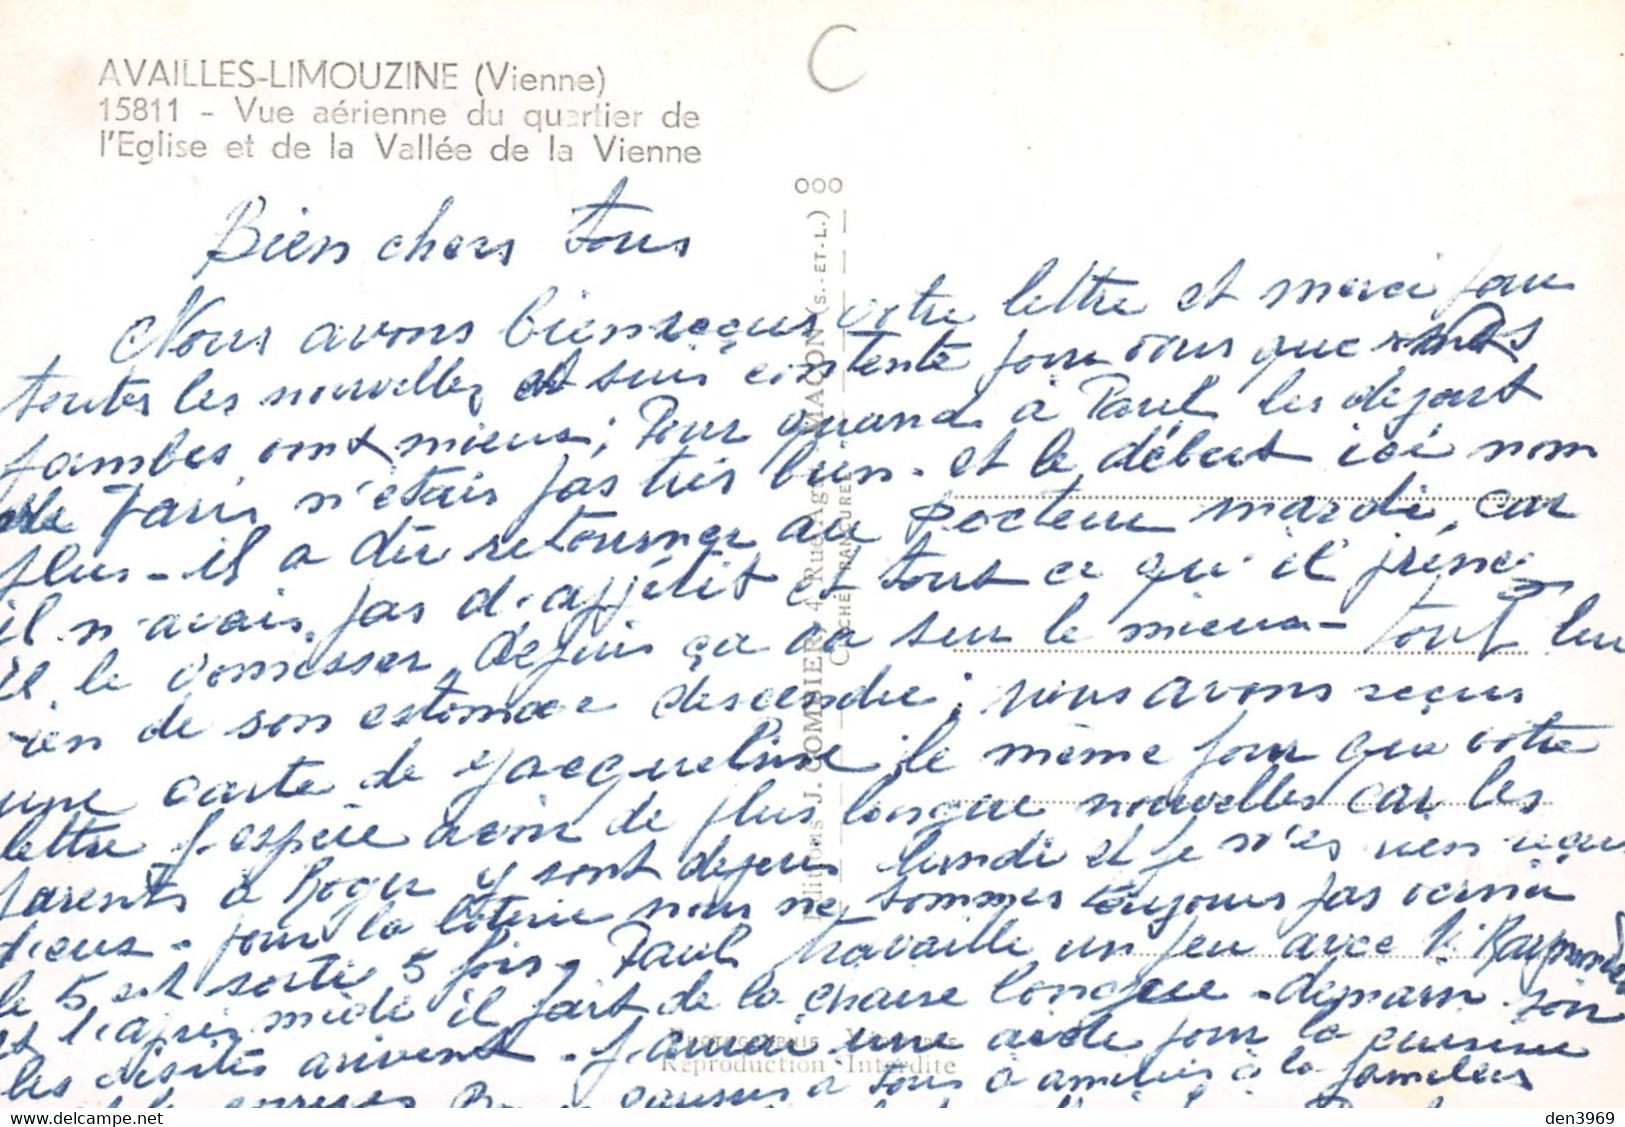 AVAILLES-LIMOUZINE (Vienne)
15811 - Vue aérienne du quartier de
l'Eglise et de la Vallée de la Vienne
C
000
Editions J. COMBIER 4, Rue Agut MACON (S.-ET-L.)
CLICHÉ RANCUREL
Bien chers tous
Nous avons bien reçus votre lettre et merci pour
toutes les nouvelles et suis contente pour vous que
jambes vont mieux; Pour quand à Paul les depart
de Paris n'étais pas très bien - et le début ici nom
plus - il a dû retourner au Docteur mardi, car
il n'avais pas d'appétit et tout ce qu'il prenez
il le vomisser depuis ça va sur le mieux - tout lui
rien de son estomac descendre; nous avons reçus
une carte de Jacqueline le même jour que votre
lettre j'espère avoir de plus longue nouvelles car les
parents à Roger y sont depuis lundi et je n'es rien reçus
d'eux - pour la loterie nous ne sommes toujours pas verni
le 5 est sorti 5 fois, Paul travaille un peu avec Raymond
et l'après midi il fait de la chaise longue - demain
les visites arrivent - j'aurai une aide pour la cuisine
PHOTOGRAPHIE
Reproduction Interdite
à tous à la
den3969